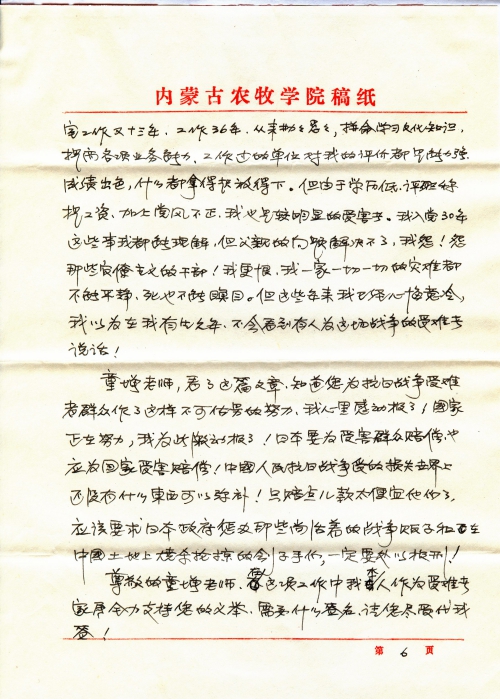 内蒙古农牧学院稿纸
室工作又十三年，工作36年，从来勤勤恳恳，拼命学习文化知识，
提高各项业务能力，工作过的单位对我的评价都是能力强
成绩出色，什么都拿得起放得下。但由于学历低，评职称
提工资，加上党风不正，我也是较明显的受害者。我入党30年
这些事我都能理解，但父亲的问题解决不了，我怨！怨
那些官僚主义的干部！我更恨，我一家一切一切的灾难都
不能平静，死也不能瞑目。但这些年来我已经心恢意冷，
我以为在我有生之年，不会看到有人为这场战争的受难者
说话！
童增老师，看了这篇文章，知道您为抗日战争受难
者群众作了这样不可估量的努力，我心里感动极了！国家
正在努力，我为此激动极了！日本要为受害群众赔偿，也
应为国家受害赔偿！中國人民抗日战争受的损失世界上
还没有什么東西可以弥补！只赔点儿款太便宜他们了，
应该要求日本政府惩办那些尚活着的战争贩子和在
中國土地上烧杀抢掠的刽子手们，一定要处以极刑！
尊敬的童增老师，在这项工作中我本人作为受难者
家属全力支持您的义举，需要什么签名，请您尽管代我
签！
第 6 页